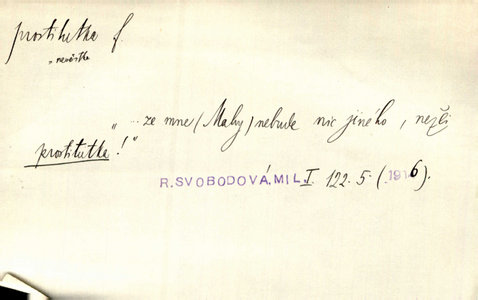 prostitutka f.
„ nevěstka
„ ... ze mne (Mahy) nebude nic jiného, nežli
prostitutka!“
R. SVOBODOVÁ, MIL. I. 122. 5. (1916).